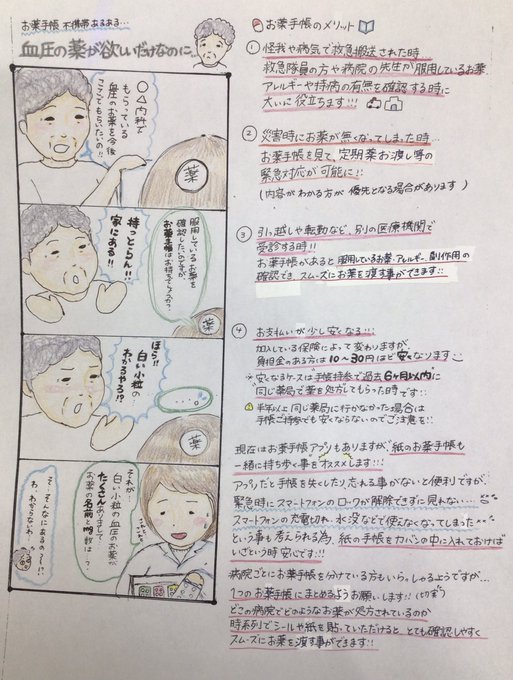 お薬手帳 不携帯あるある…
血圧の薬が欲しいだけなのに…
○△内科で
もらっている
血圧のお薬を今後
ここでもらいたいの!!
薬
服用しているお薬を
確認したいのですが
お薬手帳はお持ちでしょうか?
持っとらん!!
家にある!!
薬
ほら!!
白い小粒の…
わかるやろ!?
薬
それが…
白い小粒の血圧のお薬が
たくさんありまして
お薬の名前と㎎数は…?
そ…そんなにあるの〜!?
わ、わからないわ…
お薬手帳のメリット
① 怪我や病気で救急搬送された時…
救急隊員の方や病院の先生が服用しているお薬
アレルギーや持病の有無を確認する時に
大いに役立ちます!!!
② 災害時にお薬が無くなってしまった時…
お薬手帳を見て、定期薬お渡し等の
緊急対応が可能に!!
(内容がわかる方が優先となる場合があります)
③ 引っ越しや転勤など、別の医療機関で
受診する時!!
お薬手帳があると服用しているお薬・アレルギー、副作用の
確認でき、スムーズにお薬を渡す事ができます!!
④ お支払いが少し安くなる!!!
加入している保険によって変わりますが、
負担金のある方は10〜30円ほど安くなります
※安くなるケースは手帳持参で過去6ヶ月以内に
同じ薬局で薬を処方してもらった時です!!
半年以上同じ薬局に行かなかった場合は
手帳ご持参でも安くならないのでご注意を!!
現在はお薬手帳アプリもありますが、紙のお薬手帳も
一緒に持ち歩く事をオススメします!!!
アプリだと手帳を失くしたり、忘れる事がないと便利ですが、
緊急時にスマートフォンのロックが解除できずに見れない…
スマートフォンの充電切れ、水没などで使えなくなってしまった…
という事も考えられる為、紙の手帳をカバンの中に入れておけば
いざという時安心です!!!
病院ごとにお薬手帳を分けている方もいらっしゃるようですが…
1つのお薬手帳にまとめるようお願いします!!(切実)
どこの病院でどのようなお薬が処方されているのか
時系列でシールや紙を貼っていただけると、とても確認しやすく
スムーズにお薬を渡す事ができます!!